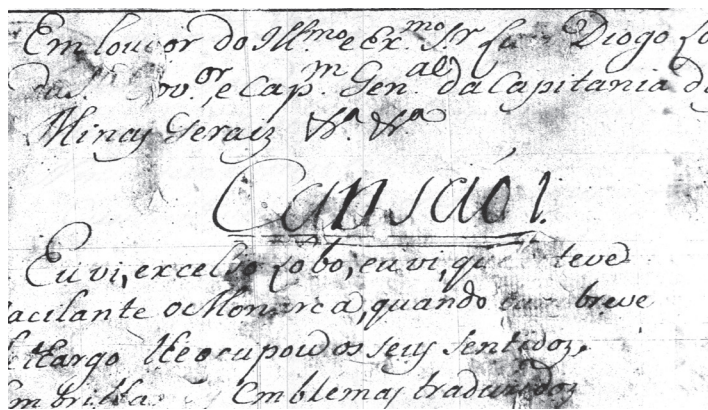 Em louvor do Ill.mo e Ex.mo S.r Diogo
Gov.or, e Cap.m Gen.al da Capitania
Minas Geraiz &.a &.a
Cansaó 1.
Eu vi, excelso Lobo, eu vi, que teve
acilante o Monarca, quando breve
lhe ocupou os seus sentidoz,
Emblemas traduzidoz